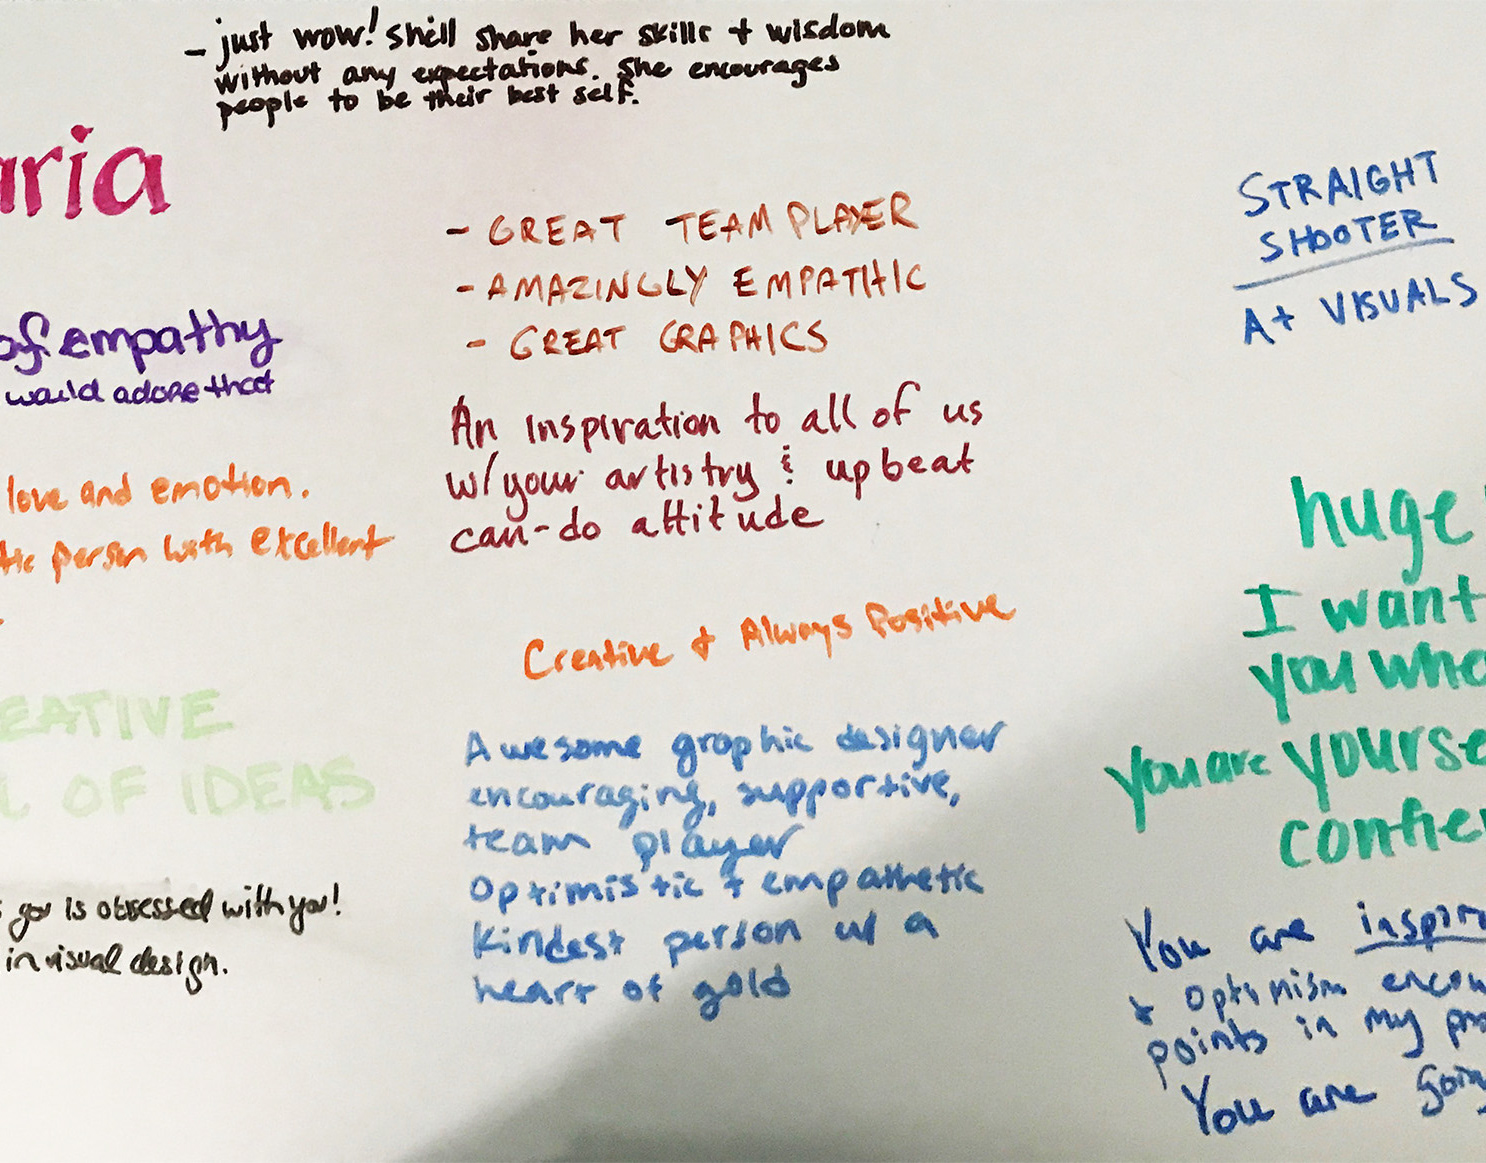 - just wow! she'll share her skills + wisdom
without any expectations. She encourages
people to be their best self.
aria
of empathy
would adore that
love and emotion.
person with excellent
EATIVE
L OF IDEAS
is obsessed with you!
in visual design.
- GREAT TEAM PLAYER
- AMAZINGLY EMPATHIC
- GREAT GRAPHICS
An inspiration to all of us
w/your artistry & upbeat
can-do attitude
Creative + Always Positive
Awesome graphic designer
encouraging, supportive,
team player
Optimistic + empathetic
Kindest person w/ a
heart of gold
STRAIGHT
SHOOTER
A+ VISUALS
huge
I want
you
you are yourse
confie
You are inspir
+ optimism encou
points in my pro
You are goin